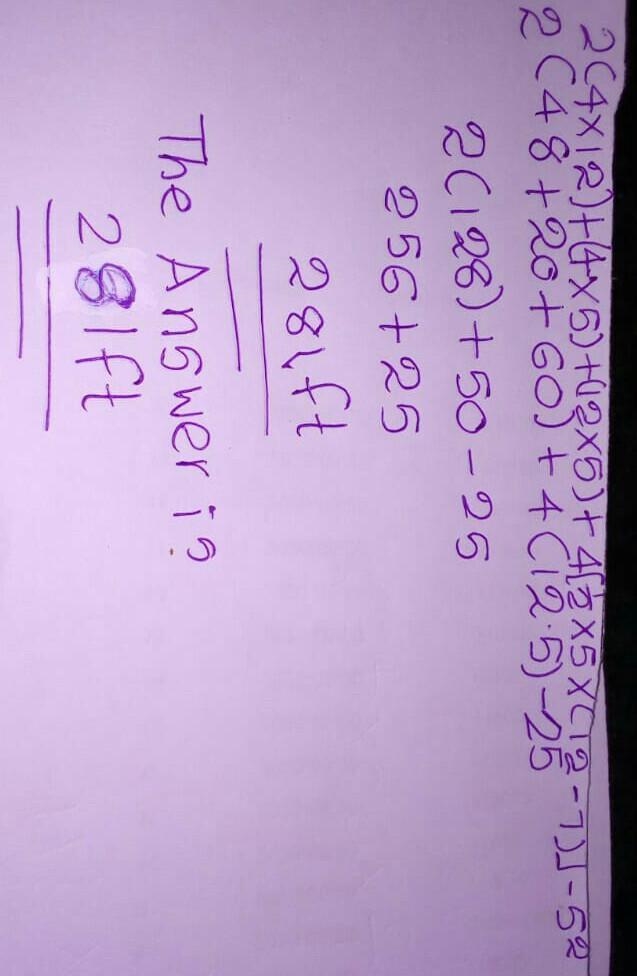 2(4×12)+(4×5)+(12×5)+4[½×5×(12-7)]-5²
2(48+20+60)+4(12.5)-25
2(128)+50-25
256+25
281ft
The Answer is
281ft